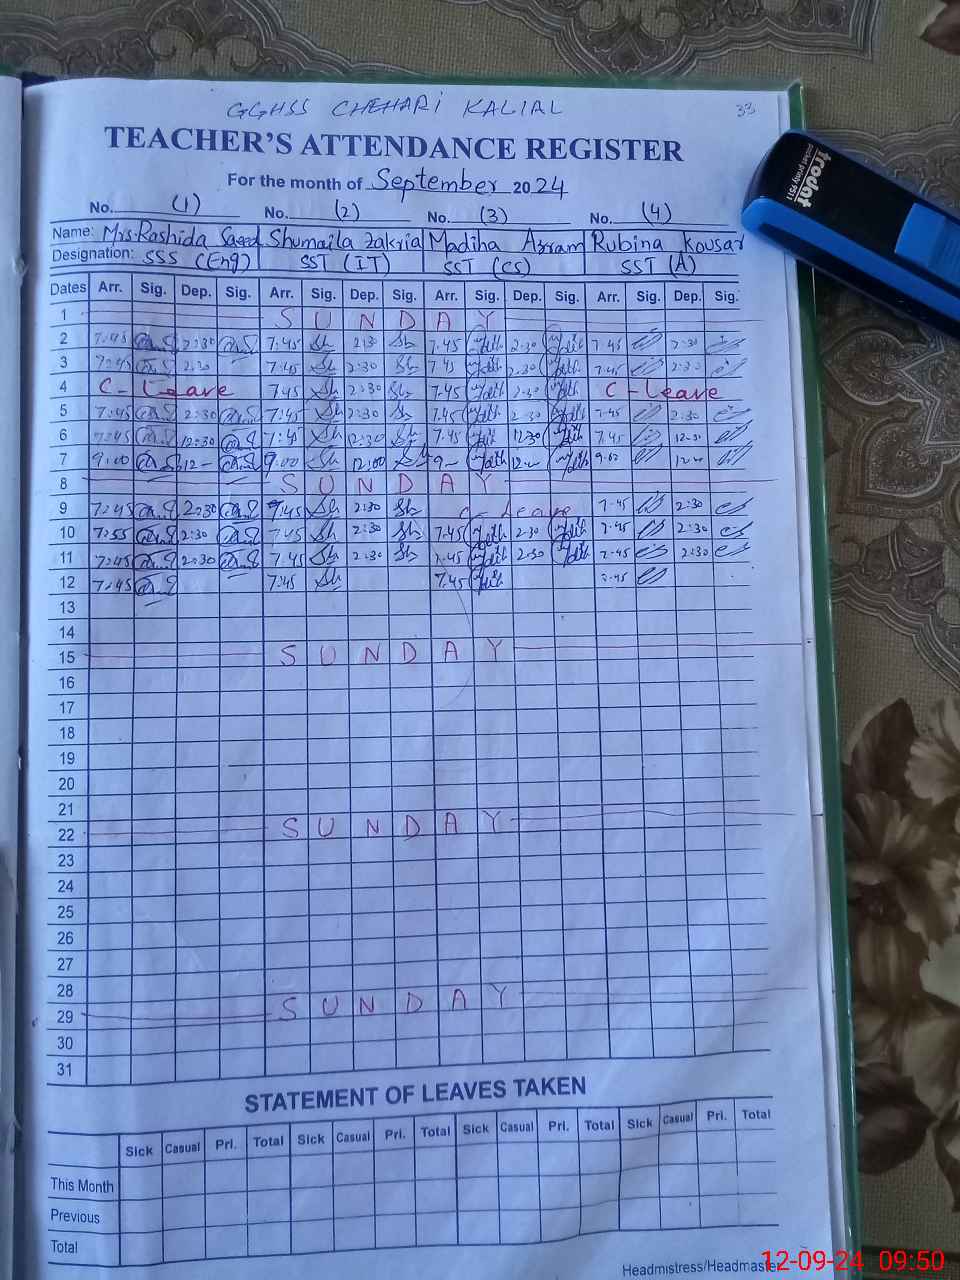 GGHSS CHEHARI KALIAL 33
TEACHER'S ATTENDANCE REGISTER
For the month of September 2024
No. (1) No. (2) No. (3) No. (4)
Name: Mrs. Rashida Saeed Shumaila Zakria Madiha Azram Rubina Kousar
Designation: SSS (Eng) SST (IT) SST (CS) SST (A)
Dates Arr. Sig. Dep. Sig. Arr. Sig. Dep. Sig. Arr. Sig. Dep. Sig. Arr. Sig. Dep. Sig.
1 SUNDAY
2 7:45 2:30 7:45 2:30 7.45 2:30 7.45 2:30
3 7:45 2:30 7:45 2:30 7.45 2:30 7.45 2:30
4 C-Leave 7:45 2:30 7.45 2:30 C-Leave
5 7:45 2:30 7:45 2:30 7.45 2:30 7.45 2:30
6 7:45 12:30 7:45 12:30 7.45 12:30 7.45 12:30
7 9:00 12- 9:00 12:00 9- 12- 9.00 12-
8 SUNDAY
9 7:45 2:30 7:45 2:30 C-Leave 7.45 2:30
10 7:55 2:30 7:45 2:30 7.45 2:30 7.45 2:30
11 7:45 2:30 7:45 2:30 7.45 2:30 7.45 2:30
12 7:45 7:45 7.45 7.45
13
14
15 SUNDAY
16
17
18
19
20
21
22 SUNDAY
23
24
25
26
27
28
29 SUNDAY
30
31
STATEMENT OF LEAVES TAKEN
Sick Casual Pri. Total Sick Casual Pri. Total Sick Casual Pri. Total Sick Casual Pri. Total
This Month
Previous
Total
Headmistress/Headmaster
12-09-24 09:50
trodat
pocket printy 9511